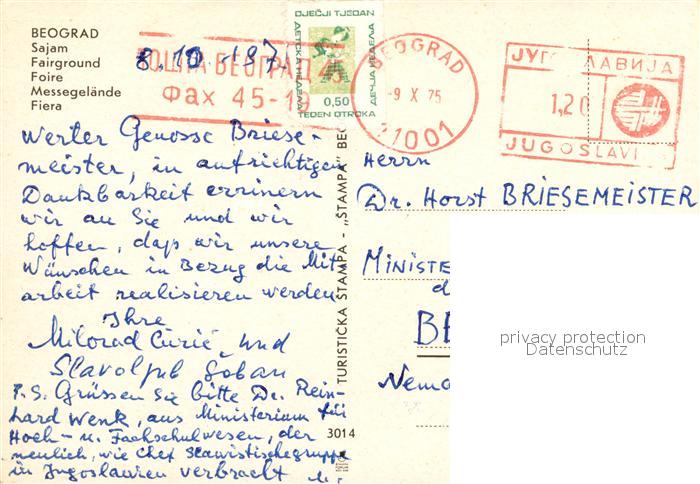 BEOGRAD
Sajam
Fairground
Foire
Messegelände
Fiera
8.10.197
ПОШТА·БЕОГРАД 45
Фах 45-19
DJEČJI TJEDAN
ДЕТСКА НЕДЕЛА
ДЕЧЈА НЕДЕЉА
0,50
TEDEN OTROKA
BEOGRAD
-9 X 75
11001
ЈУГ ЛАВИЈА
1,20
JUGOSLAVI
Werter Genosse Briese-
meister, in aufrichtigen
Dankbarkeit errinern
wir an Sie und wir
hoffen, daps wir unsere
Wünschen in Bezug die Mit
arbeit realisieren werden
Ihre
Milorad Ćurić und
Slavoljub Goban
P.S. Grüssen Sie bitte Dr. Rein-
hard Wenk, aus Ministerium für
Hoch- u. Fachschulwesen, der
neulich, wie Chef Slawistischegruppe
in Jugoslawien verbracht
TURISTICKA ŠTAMPA - „ŠTAMPA" BEO
3014
Herrn
Dr. Horst BRIESEMEISTER
MINISTE
d
BE
Nema
privacy protection
Datenschutz